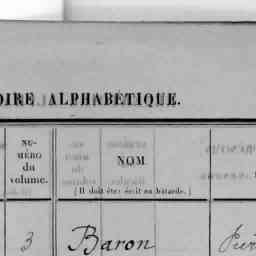 OIRE ALPHABÉTIQUE.
NU-
MÉRO
du
volume.
NOM
(Il doit être écrit en bâtarde.)
3 Baron